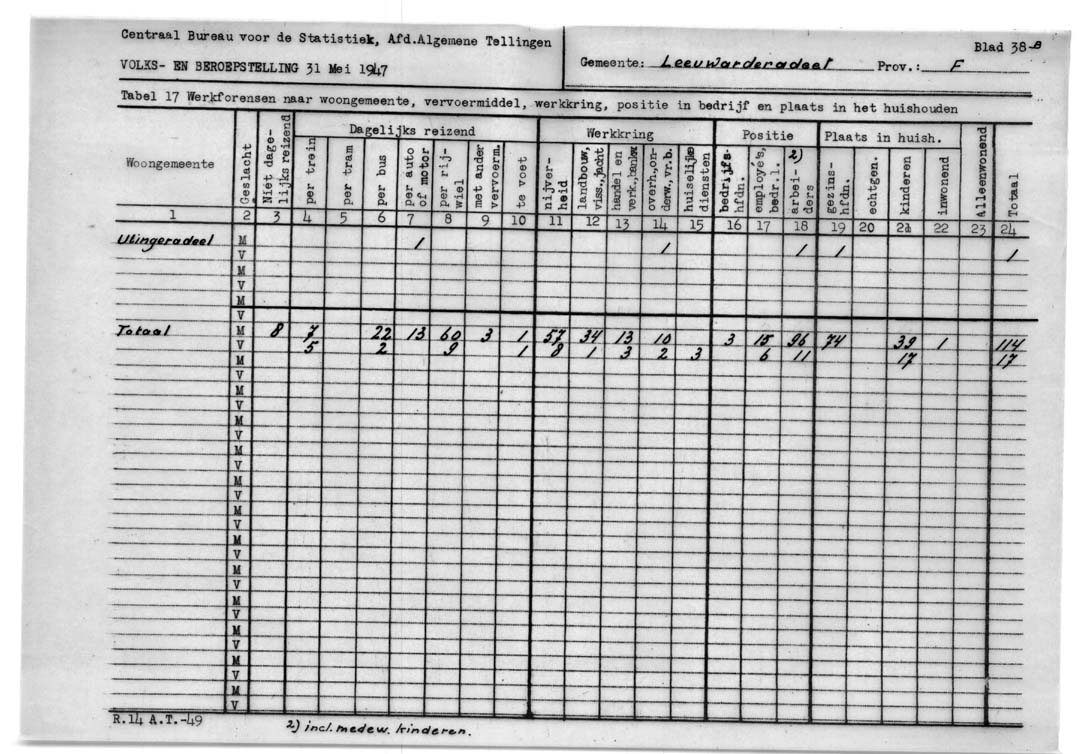 Centraal Bureau voor de Statistiek, Afd.Algemene Tellingen
VOLKS- EN BEROEPSTELLING 31 Mei 1947
Gemeente: Leeuwarderadeel Prov.: F
Blad 38-B
Tabel 17 Werkforensen naar woongemeente, vervoermiddel, werkkring, positie in bedrijf en plaats in het huishouden
Woongemeente Geslacht Níét dage-lijks reizend Dagelijks reizend Werkkring Positie Plaats in huish. Alleenwonend Totaal
per trein per tram per bus per auto of motor per rij-wiel met ander vervoerm. te voet nijver-heid landbouw, viss., jacht handel en verk., bankw. overh., on-derw., vr.b. huiselijke diensten bedrijfs-hfdn. employé's, bedr.l. arbei-ders 2) gezins-hfdn. echtgen. kinderen inwonend
1 2 3 4 5 6 7 8 9 10 11 12 13 14 15 16 17 18 19 20 21 22 23 24
Utingeradeel M 1 1 1 1 1
V
M
V
M
V
Totaal M 8 7 22 13 60 3 1 57 34 13 10 3 15 96 74 39 1 114
V 5 2 9 1 8 1 3 2 3 6 11 17 17
M
V
M
V
M
V
M
V
M
V
M
V
M
V
M
V
M
V
M
V
M
V
M
V
R.14 A.T.-49
2) incl. medew. kinderen.